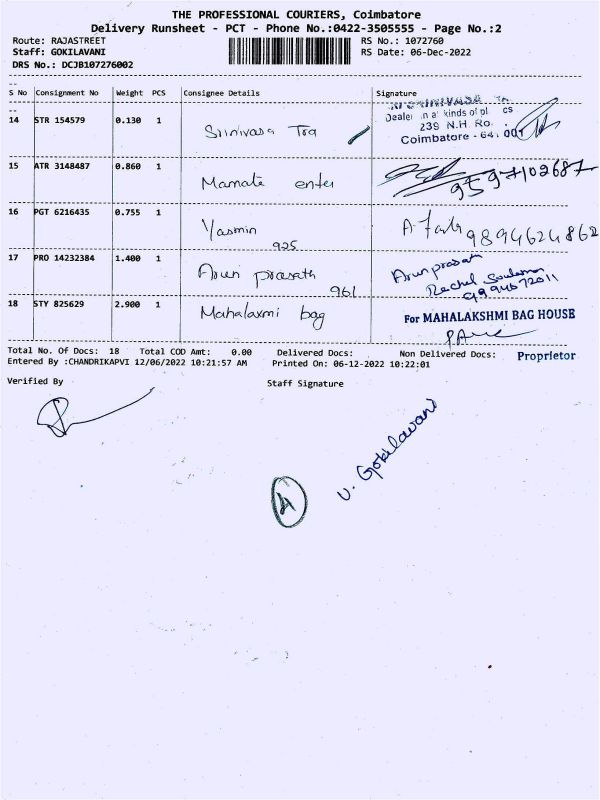 THE PROFESSIONAL COURIERS, Coimbatore
Delivery Runsheet - PCT - Phone No.:0422-3505555 - Page No.:2
Route: RAJASTREET RS No.: 1072760
Staff: GOKILAVANI RS Date: 06-Dec-2022
DRS No.: DCJB107276002
S No Consignment No Weight PCS Consignee Details Signature
14 STR 154579 0.130 1 Srinivasa Tra
Dealer in kinds of
239 N.H. Ro
Coimbatore - 641 001
15 ATR 3148487 0.860 1 Mamate enter 9597102687
16 PGT 6216435 0.755 1 Yasmin 925 9894624862
17 PRO 14232384 1.400 1 Arun prasath 961 Arun prasath
Rachel
18 STY 825629 2.900 1 Mahalaxmi bag For MAHALAKSHMI BAG HOUSE
Proprietor
Total No. Of Docs: 18 Total COD Amt: 0.00 Delivered Docs: Non Delivered Docs:
Entered By :CHANDRIKAPVI 12/06/2022 10:21:57 AM Printed On: 06-12-2022 10:22:01
Verified By Staff Signature
V. Gokilavani